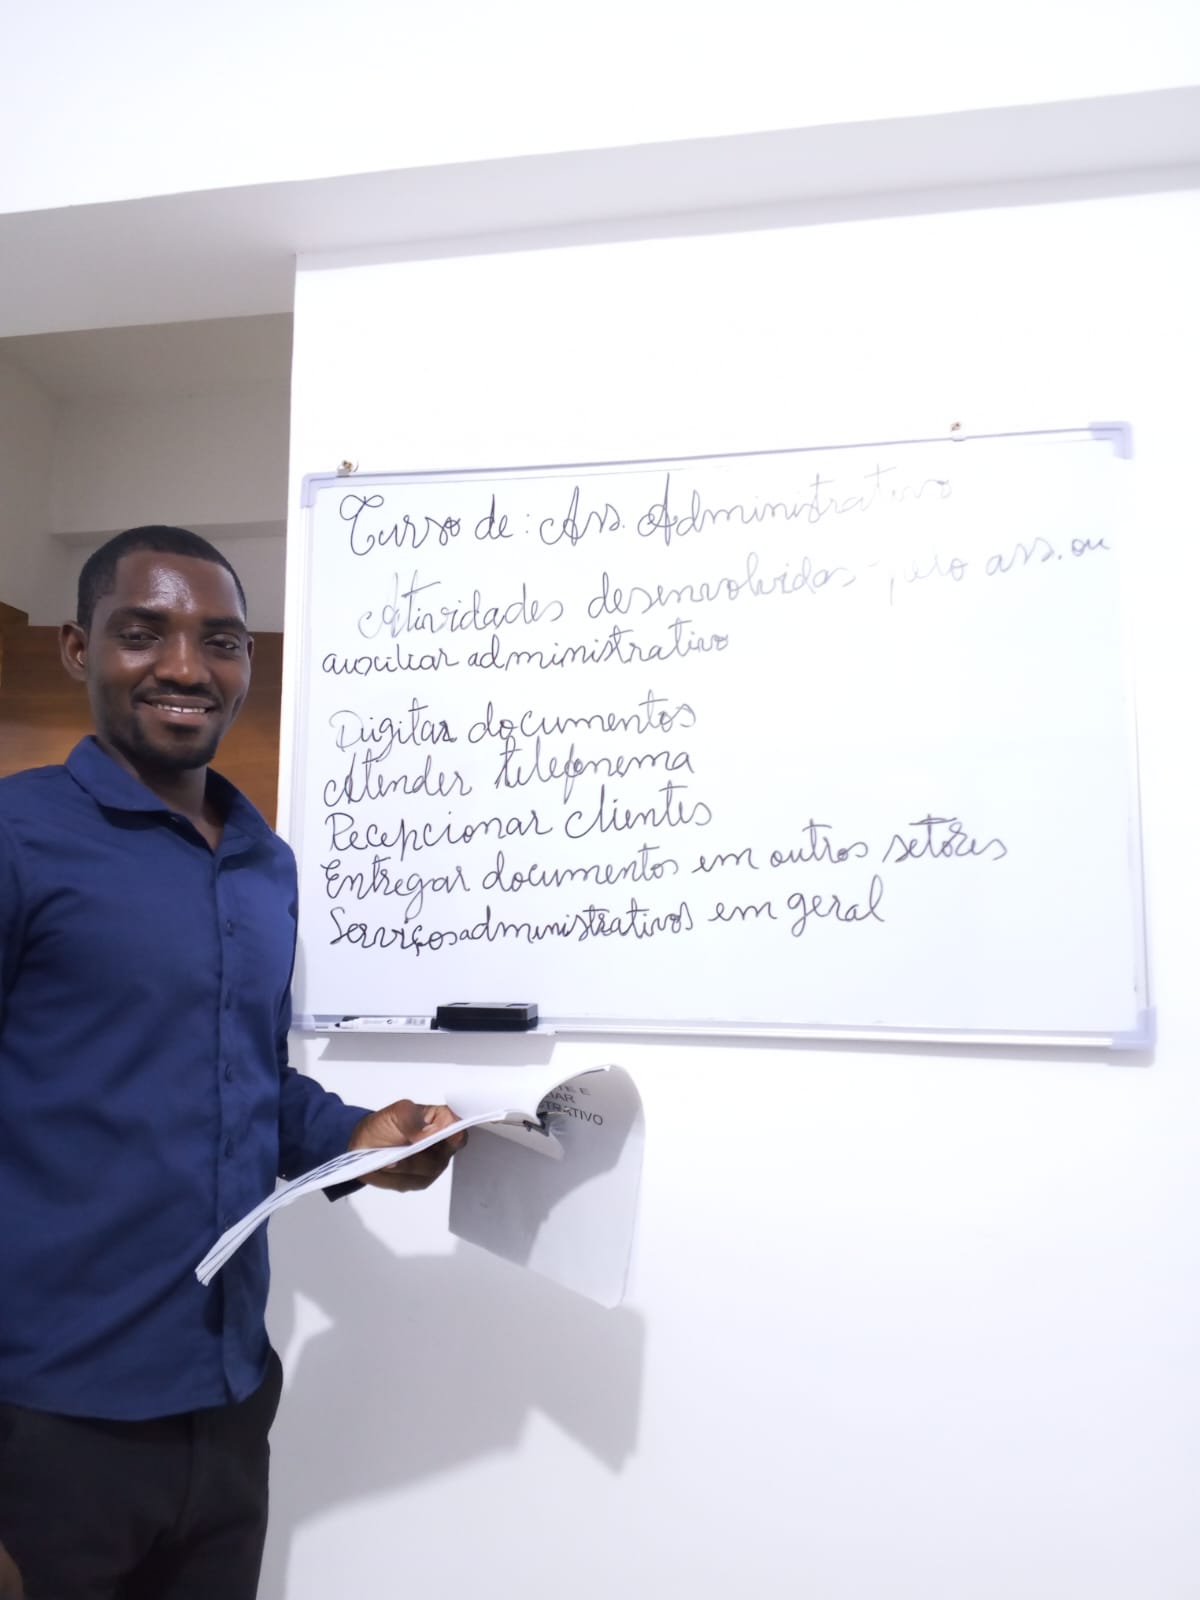 Curso de: Ass. Administrativo
Atividades desenvolvidas pelo ass. ou
auxiliar administrativo
Digitar documentos
Atender telefonema
Recepcionar clientes
Entregar documentos em outros setores
Serviços administrativos em geral
TE E
IAR
TRATIVO